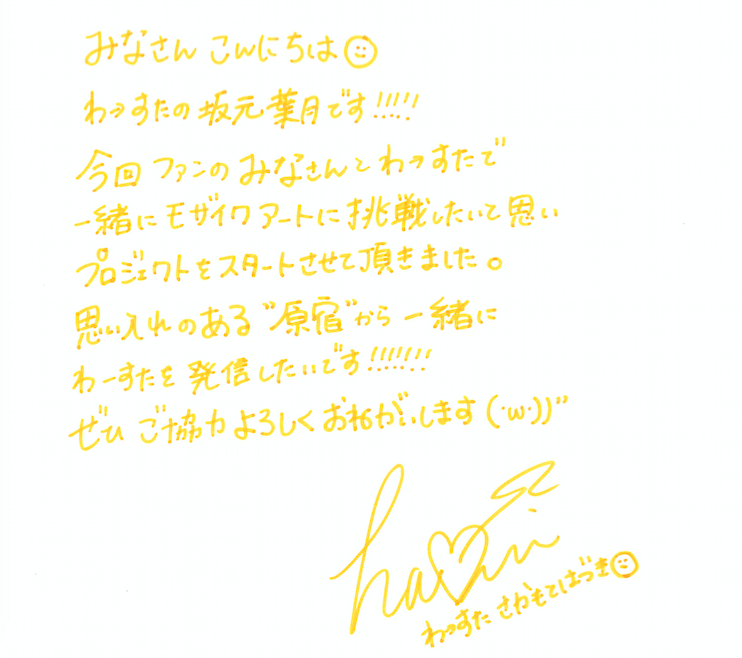 みなさん こんにちは
わーすたの坂元葉月です!!!!!
今回 ファンのみなさんとわーすたで
一緒にモザイクアートに挑戦したいと思い
プロジェクトをスタートさせて頂きました。
思い入れのある"原宿"から一緒に
わーすたを発信したいです!!!!!!!
ぜひ ご協力よろしくおねがいします(·ω·))"
わーすた さかもとはづき